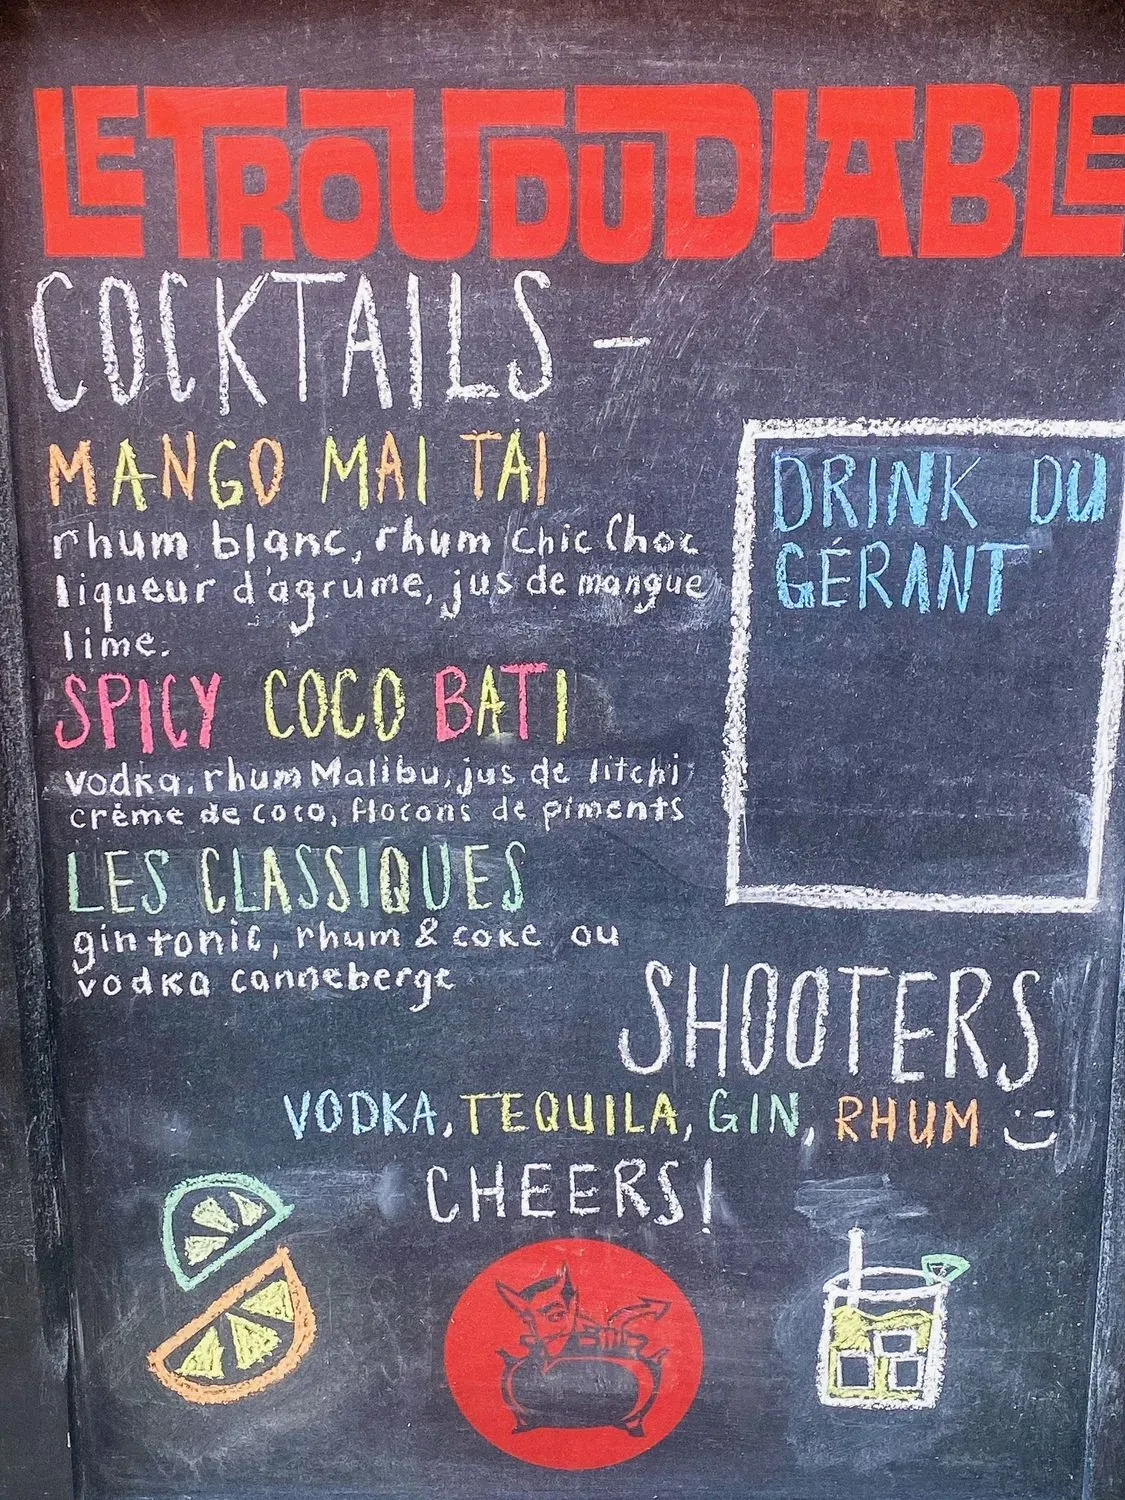 LE TROU DU DIABLE
COCKTAILS -
MANGO MAI TAI
rhum blanc, rhum Chic Choc
liqueur d'agrume, jus de mangue
lime.
SPICY COCO BATI
vodka, rhum Malibu, jus de litchi
crème de coco, flocons de piments
LES CLASSIQUES
gin tonic, rhum & coke ou
vodka canneberge
DRINK DU
GÉRANT
SHOOTERS
VODKA, TEQUILA, GIN, RHUM :)
CHEERS!